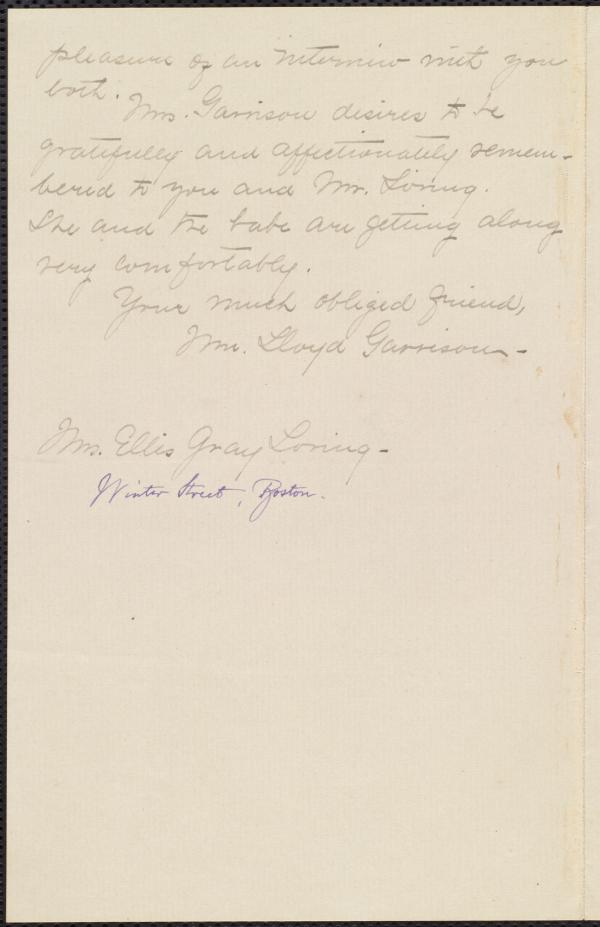 pleasure of an interview with you
both.
Mrs. Garrison desires to be
gratefully and affectionately remem-
bered to you and Mr. Loring.
She and the babe are getting along
very comfortably.
Your much obliged friend,
Wm. Lloyd Garrison-
Mrs. Ellis Gray Loring-
Winter Street, Boston.